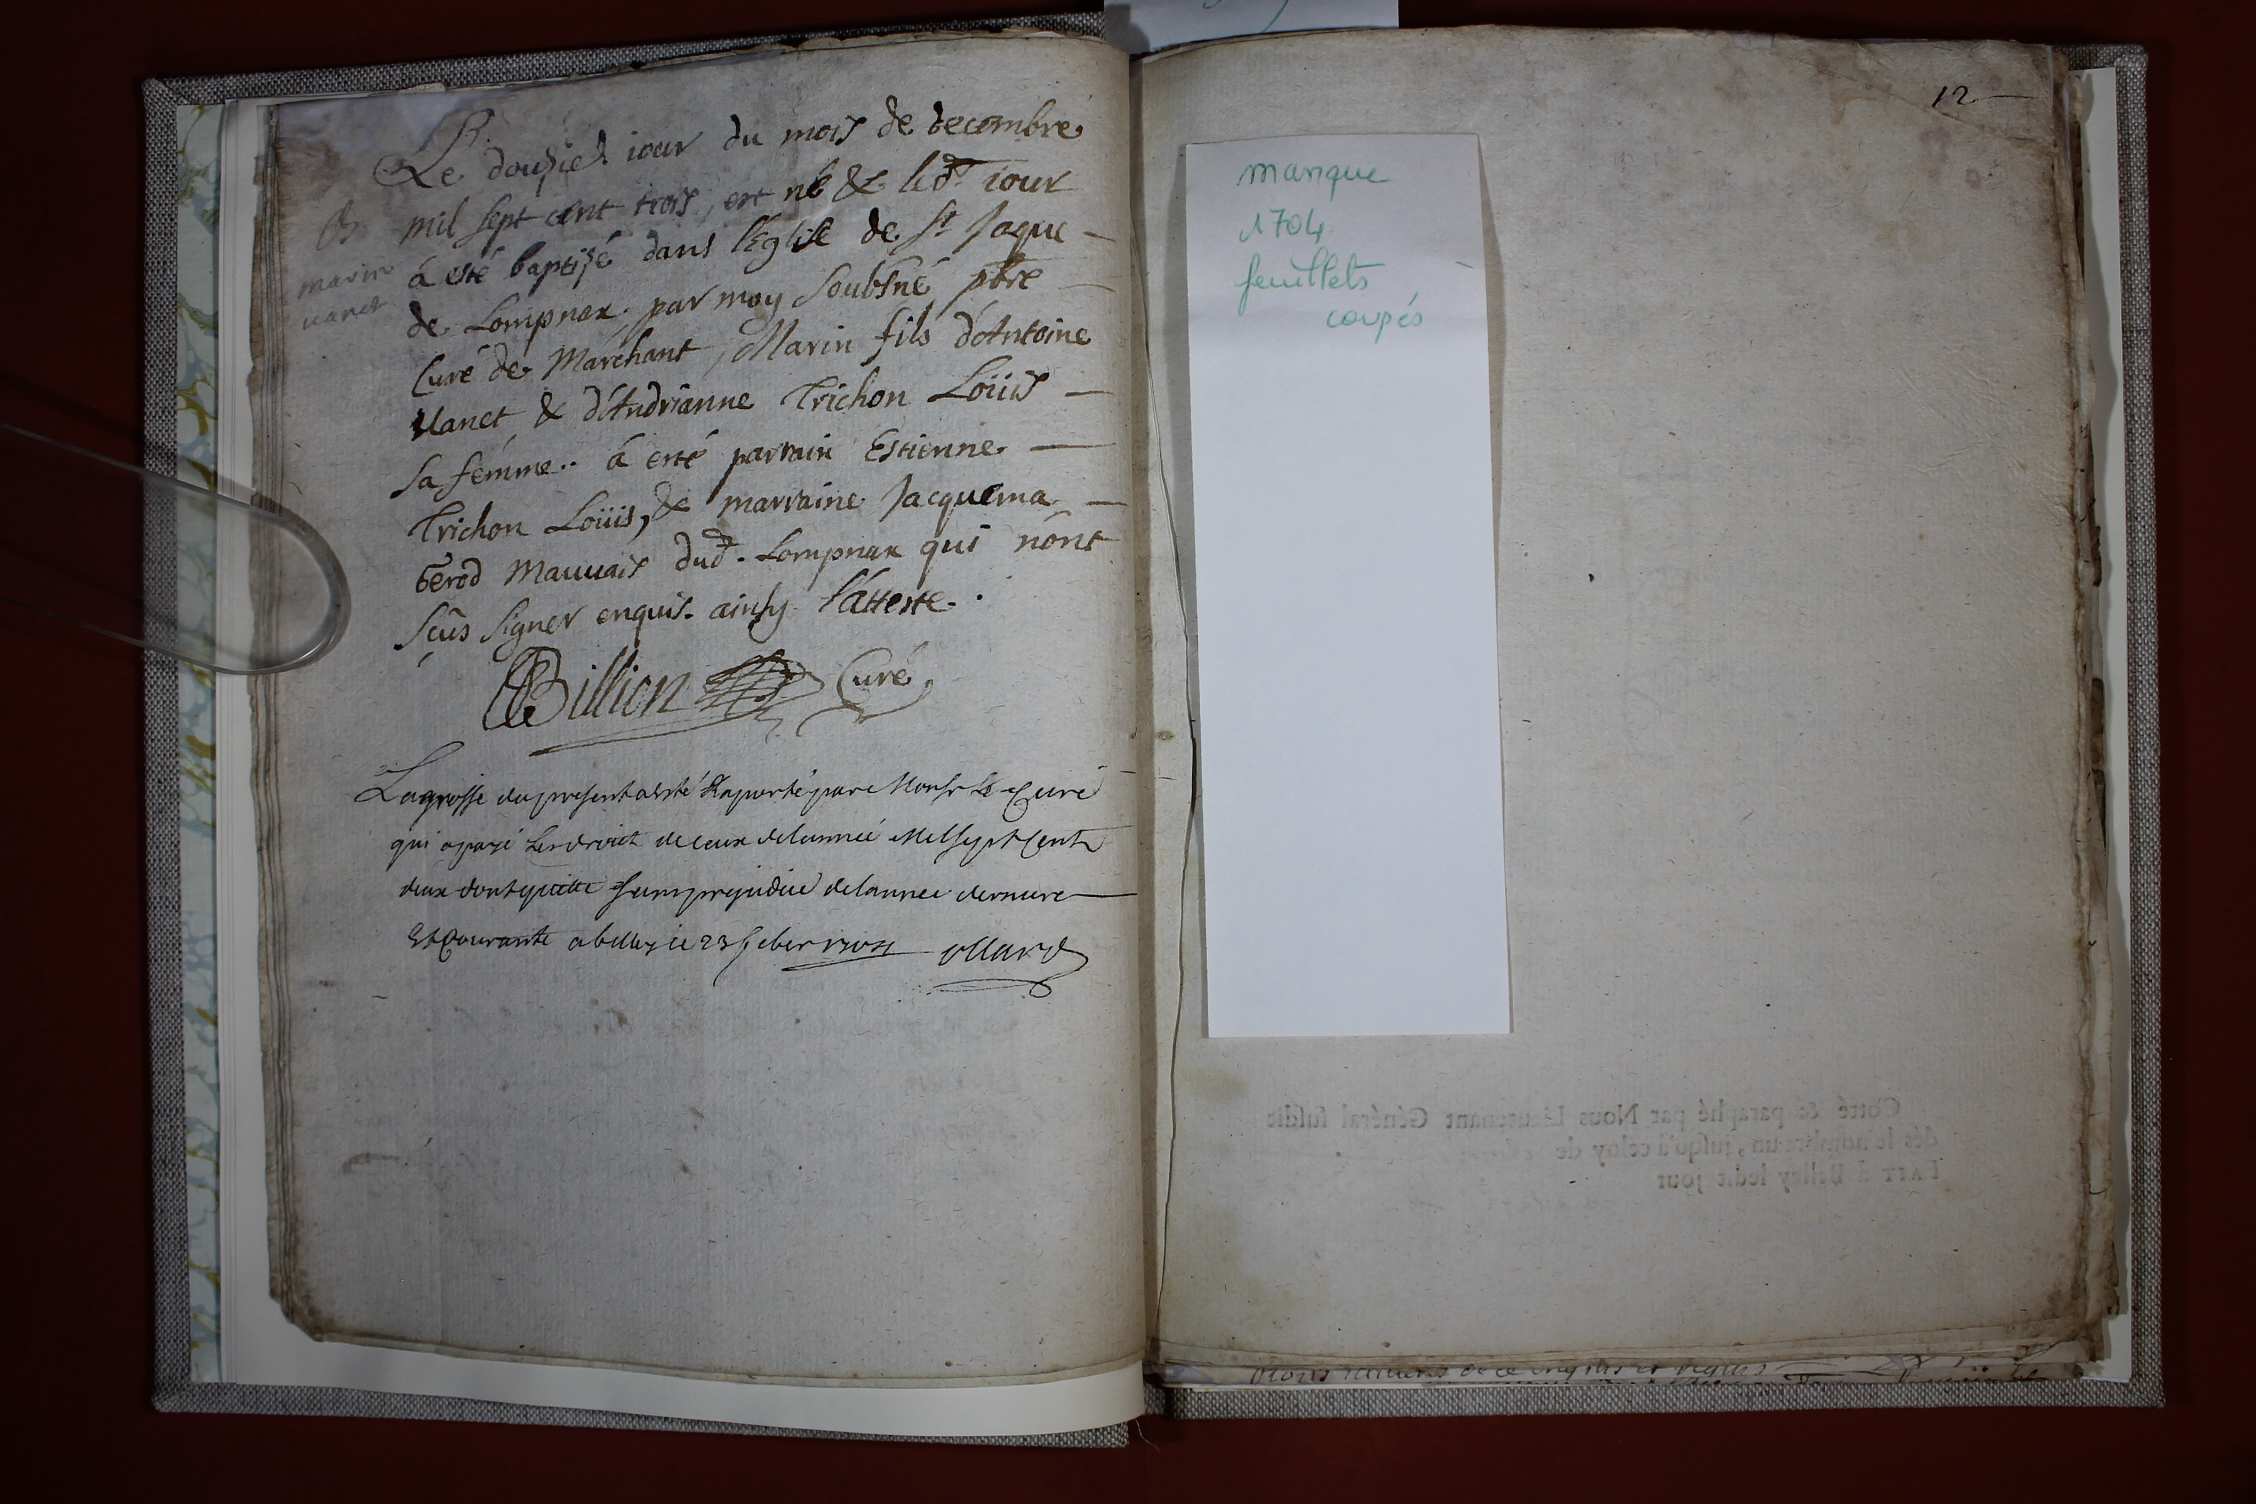 B.
Le douzieé iour du mois de decembre
mil sept cent trois, est né & led.t iour
à esté baptizé dans l'Eglise de S.t Jaque
de Lompnax, par moy Soubsné pbre
Curé de Marchant, Marin fils d'Antoine
Vanet & d'Andrianne Trichon Loüis
sa femme.. à esté parrain Estienne
Trichon Loüis, & marraine Jacquema
Gerod Mauvais dud. Lompnax qui nont
sçeus signer enquis. ainsy l'atteste.
Billion Curé
B
marin
vanet
La grosse du present a esté Raporté par Monsr Le Curé
qui a payé Les droict de ceux de lannée Mil Sept Cent
deux dont quitte sans prejudice de lannee derniere
Et Courante a belley ce 23 1704 ollard
12
manque
1704
feuillets
coupés
Cotté & paraphé par Nous Lieutenant Général susdit
dés le nombre un, jusqu'à celuy de
FAIT à Belley ledit jour